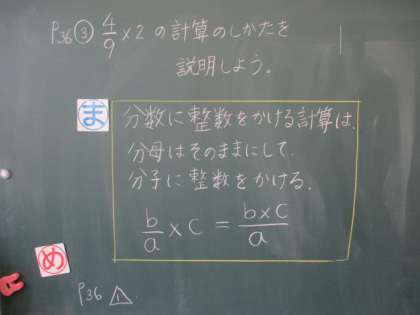 P36 ③ 4/9 × 2 の計算のしかたを
説明しよう。
ま
分数に整数をかける計算は、
分母はそのままにして、
分子に整数をかける。
b/a × c = b×c/a
め
P36 △1